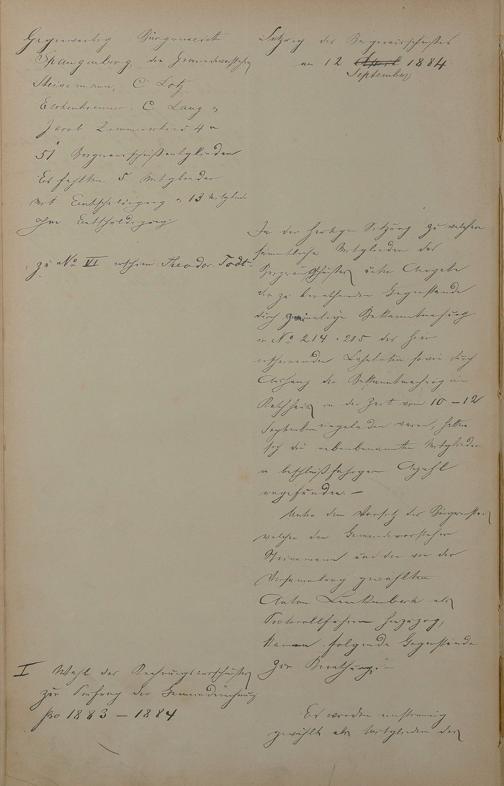 Gegenwärtig Bürgermeister
Spangenberg, die Gemeindevorsteher
Steinmann, C Lotz
C. Lang
Jacob
51 Bürgerausschußmitglieder
Es fehlten 5 Mitglieder
mit Entschuldigung u 13 Mitglieder
ohne Entschuldigung
zu No VI erschien Theodor Todt.
Sitzung des Bürgerausschusses
am 12 April 1884
September
In der heutigen Sitzung zu welcher
sämmtliche Mitglieder des
Bürgerausschusses unter Angabe
der zu berathenden Gegenstände
durch zweimalige Bekanntmachung
in No 214 u 215 des hier
erscheinenden sowie durch
Aushang der Bekanntmachung am
Rathhaus in der Zeit vom 10 – 12
September eingeladen waren, hatten
sich die nebenbenannten Mitglieder
in beschlußfähiger Anzahl
eingefunden. —
Unter dem Vorsitz des Bürgermeisters
welcher den Gemeindevorsteher
Steinmann und den von der
Versammlung gewählten
Anton als
Protokollführer hinzuzog,
kamen folgende Gegenstände
zur Berathung: —
I Wahl des Rechnungsausschusses
zur Prüfung der Gemeinderechnung
pro 1883 – 1884
Es werden einstimmig
gewählt als Mitglieder des